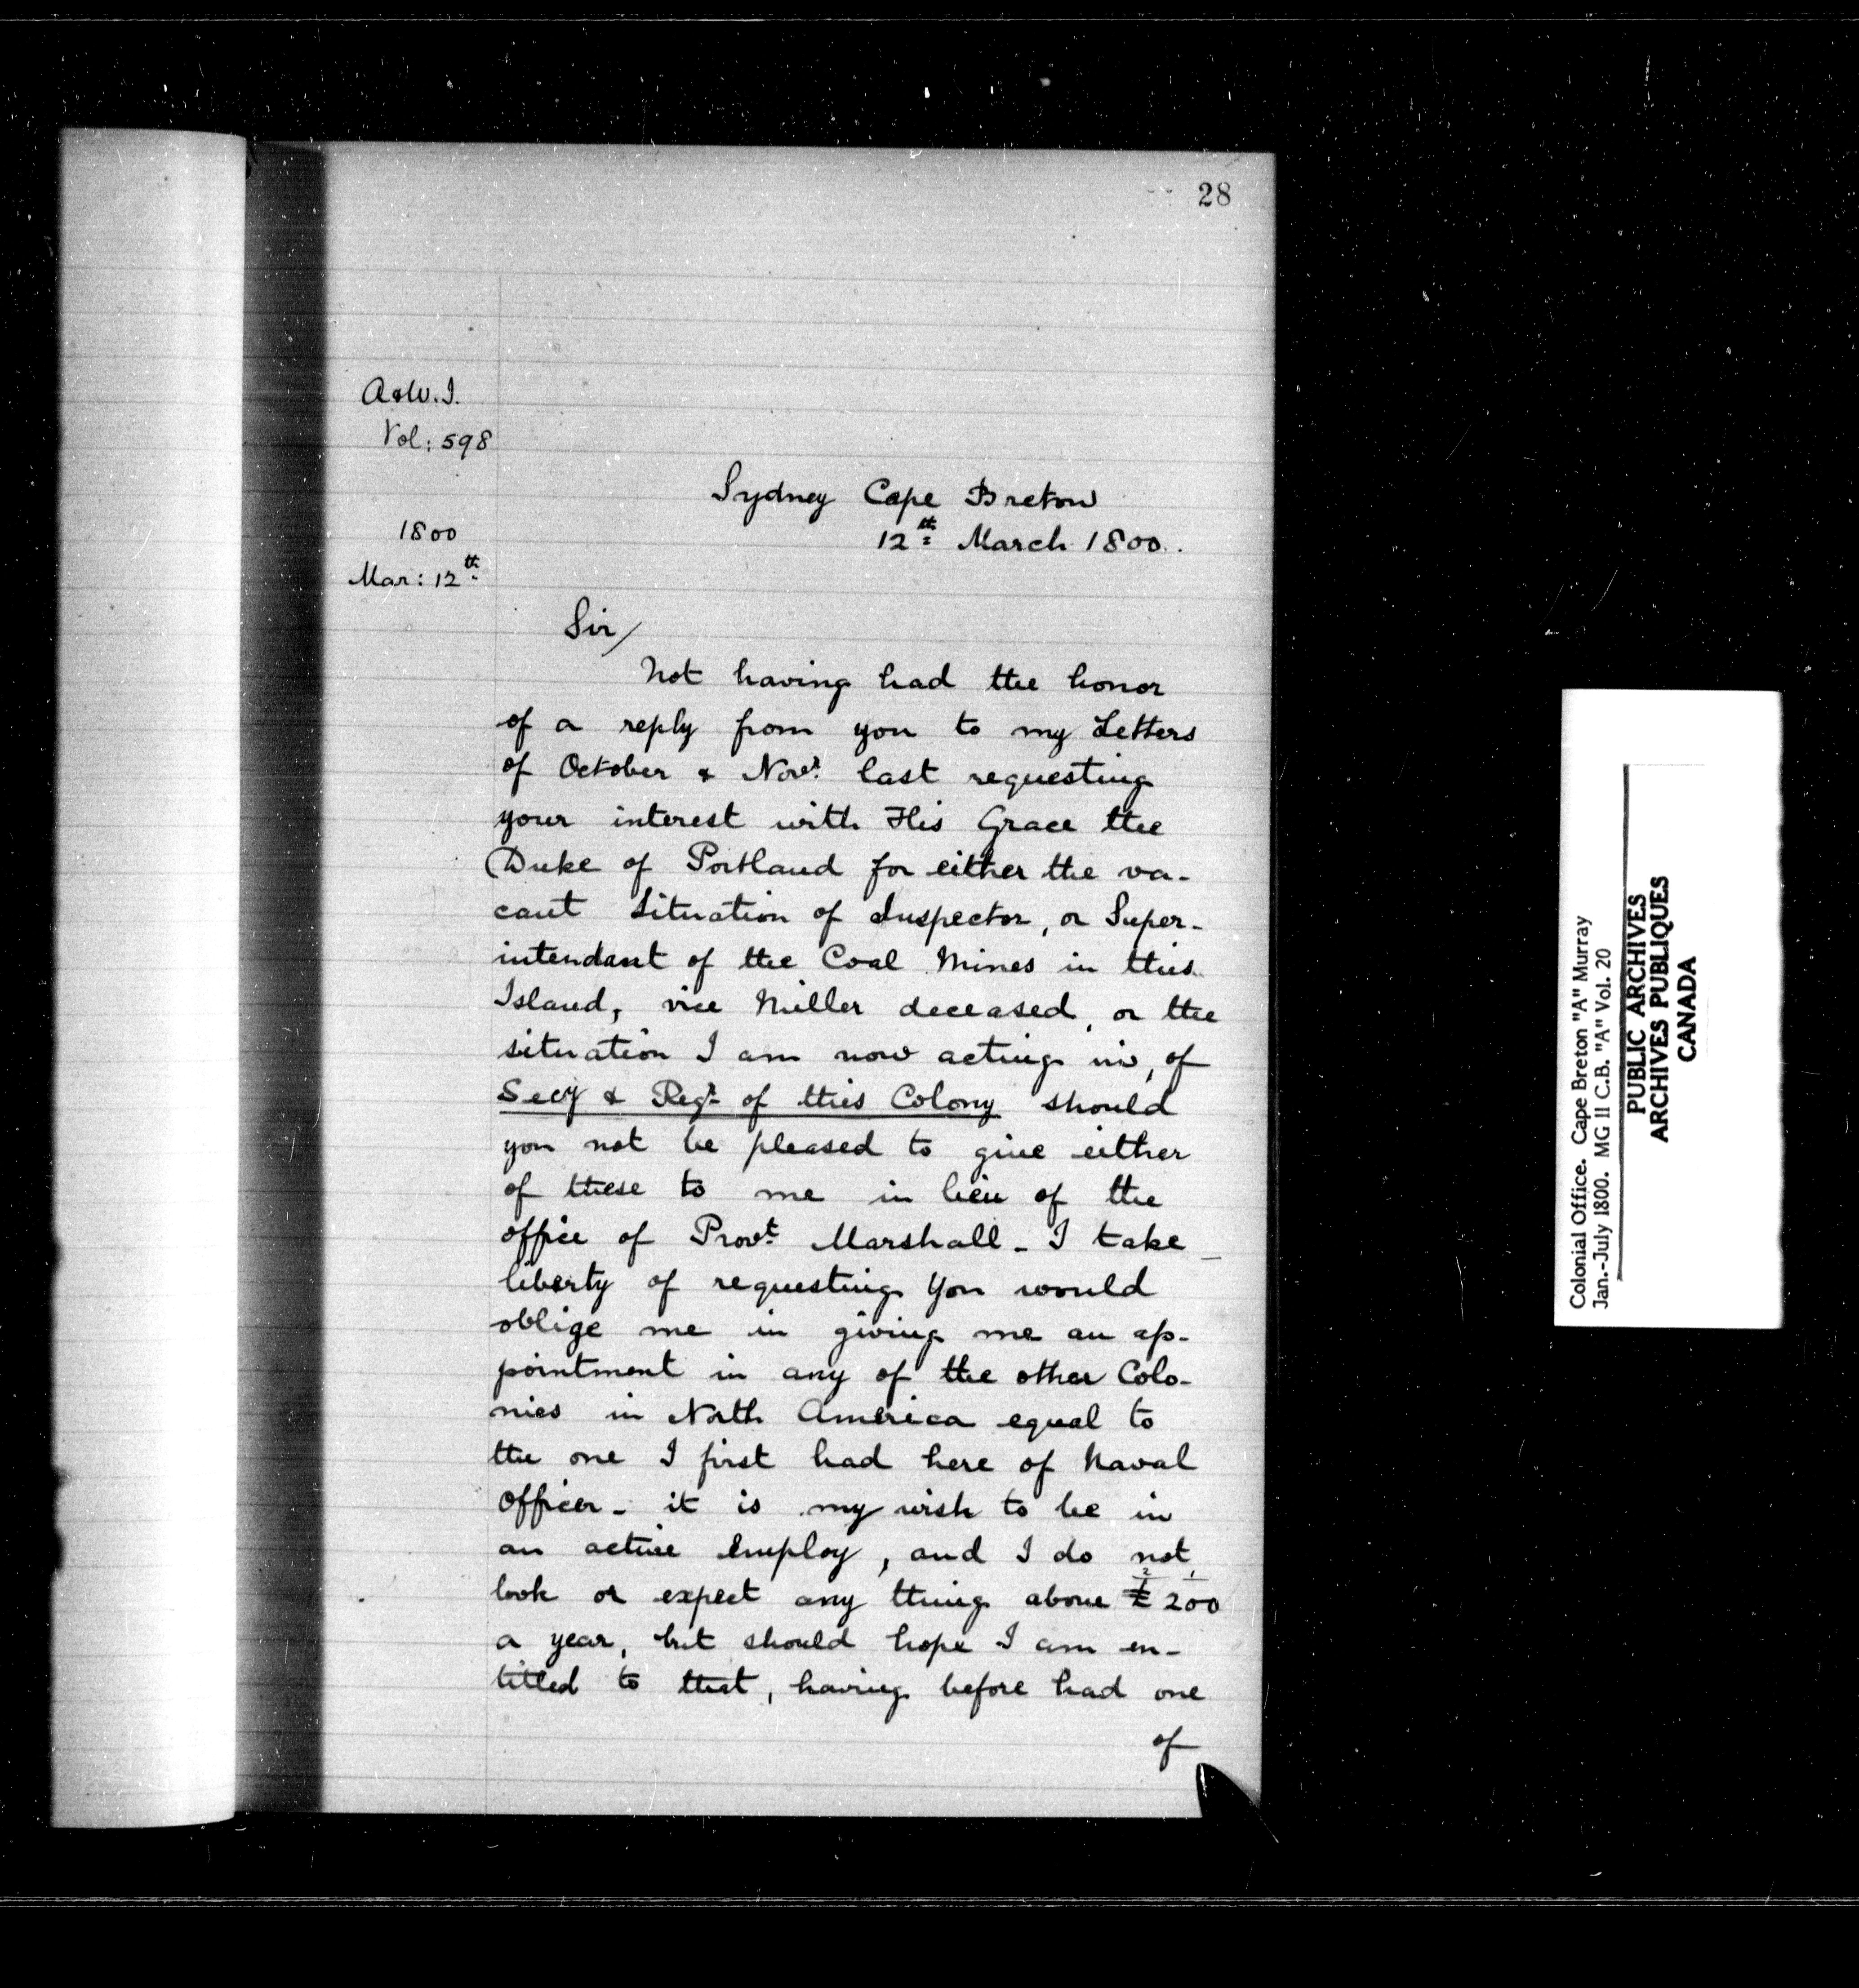 28
A & W. I.
Vol: 598
Sydney Cape Breton
12th March 1800.
1800
Mar: 12th
Sir/
Not having had the honor
of a reply from you to my Letters
of October & Novr. last requesting
your interest with His Grace the
Duke of Portland for either the va-
cant Situation of Inspector, or Super-
intendant of the Coal Mines in this
Island, vice Miller deceased, or the
situation I am now acting in, of
Secy & Regr. of this Colony should
you not be pleased to give either
of these to me in lieu of the
office of Provt. Marshall - I take
liberty of requesting you would
oblige me in giving me an ap-
pointment in any of the other Colo-
nies in North America equal to
the one I first had here of Naval
Officer - it is my wish to be in
an active Employ, and I do not
look or expect any thing above £200
a year, but should hope I am en-
titled to that, having before had one
of
Colonial Office. Cape Breton "A" Murray
Jan.-July 1800. MG 11 C.B. "A" Vol. 20
PUBLIC ARCHIVES
ARCHIVES PUBLIQUES
CANADA